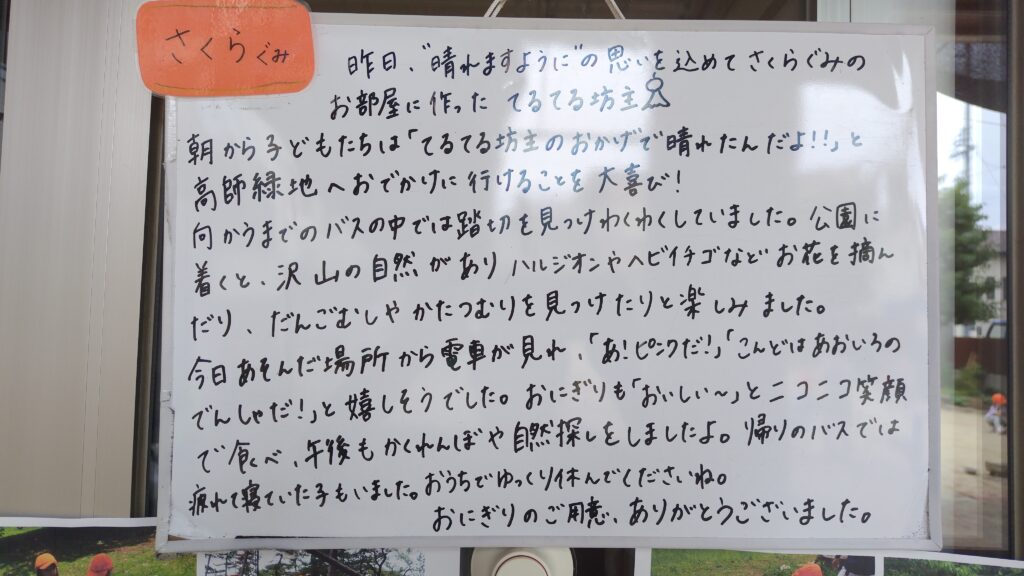 さくらぐみ
昨日、"晴れますように"の思いを込めてさくらぐみの
お部屋に作った てるてる坊主
朝から子どもたちは「てるてる坊主のおかげで晴れたんだよ!!」と
高師緑地へおでかけに行けることを大喜び!
向かうまでのバスの中では踏切を見つけわくわくしていました。公園に
着くと、沢山の自然があり ハルジオンやヘビイチゴなど お花を摘ん
だり、だんごむしや かたつむりを見つけたりと楽しみました。
今日あそんだ場所から電車が見れ、「あ!ピンクだ!」「こんどはあおいろの
でんしゃだ!」と嬉しそうでした。おにぎりも「おいしい～」とニコニコ笑顔
で食べ、午後もかくれんぼや自然探しをしましたよ。帰りのバスでは
疲れて寝ていた子もいました。おうちでゆっくり休んでくださいね。
おにぎりのご用意、ありがとうございました。